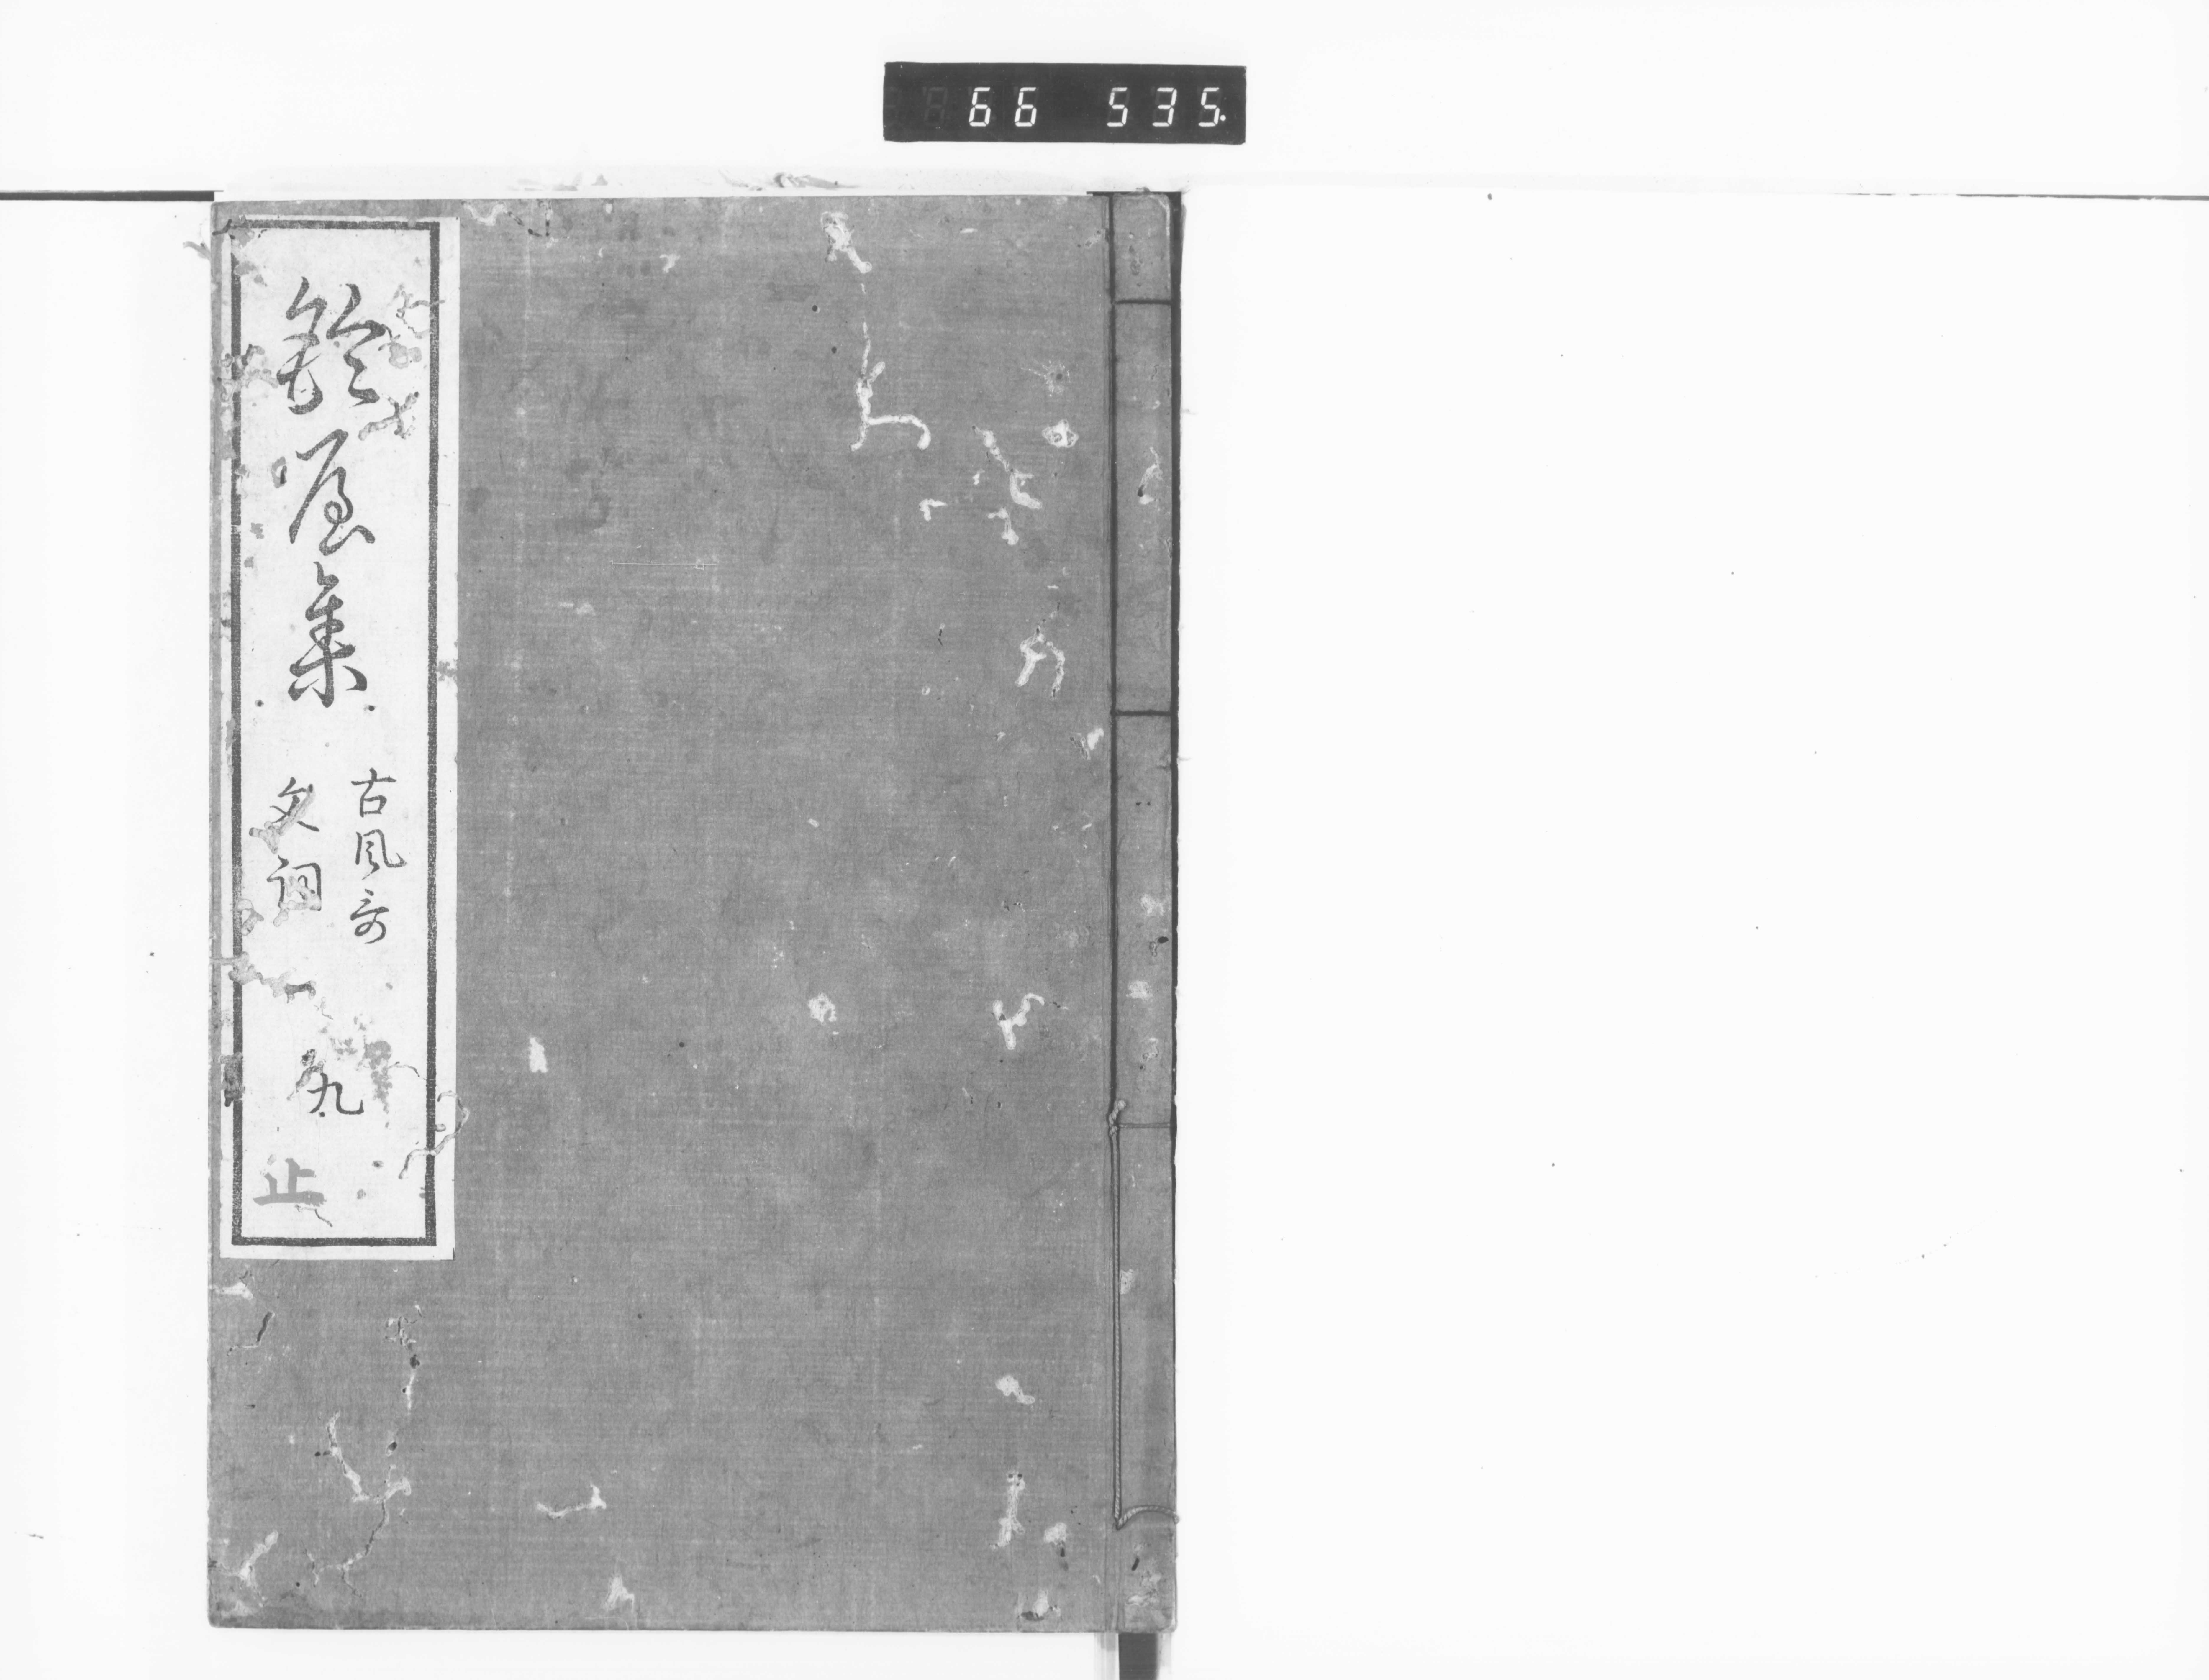 66 535.
鈴屋集
古風哥
文詞
九
止